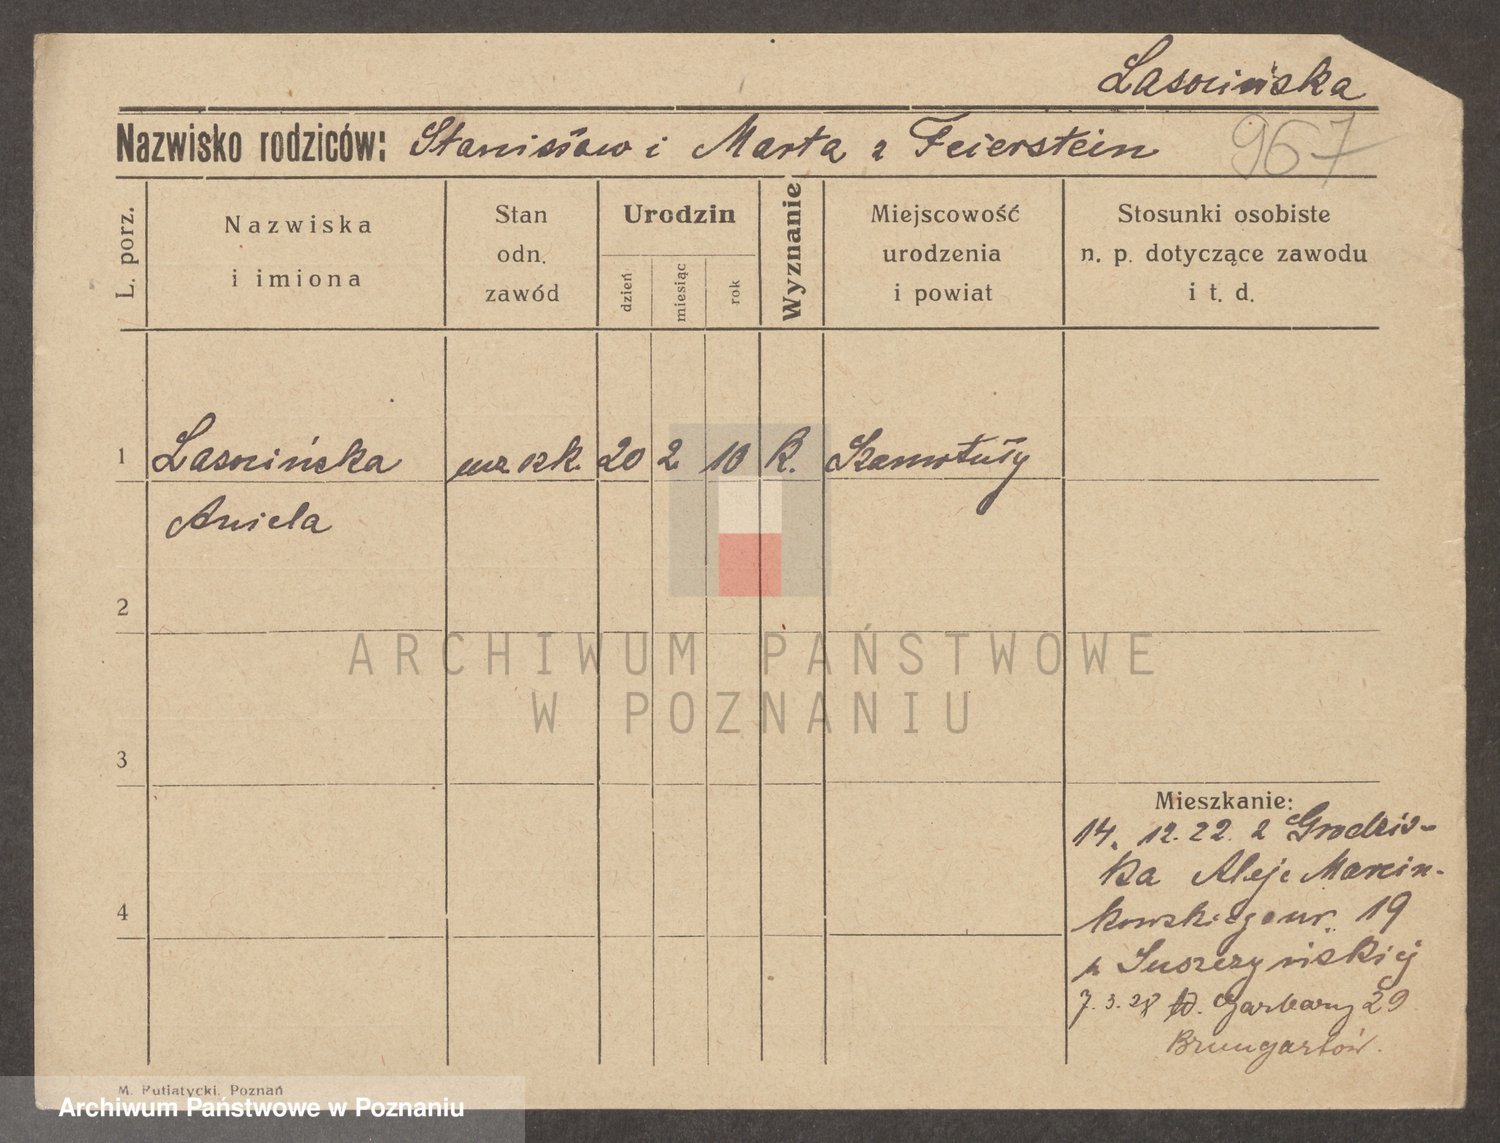 Lasocińska
Nazwisko rodziców: Stanisław i Marta z Feierstein
967
L. porz.
Nazwiska
i imiona
Stan
odn.
zawód
Urodzin
dzień
miesiąc
rok
Wyznanie
Miejscowość
urodzenia
i powiat
Stosunki osobiste
n. p. dotyczące zawodu
i t. d.
1 Lasocińska ucz szk. 20 2 10 K. Szamotuły
Aniela
2
3
4
ARCHIWUM PAŃSTWOWE
W POZNANIU
Mieszkanie:
14. 12. 22. z Grodzis-
ka Aleje Marcin-
kowskiego nr. 19
p Suszczyńskiej
7. 3. 28 Garbary 29
M. Putiatycki, Poznań
Archiwum Państwowe w Poznaniu